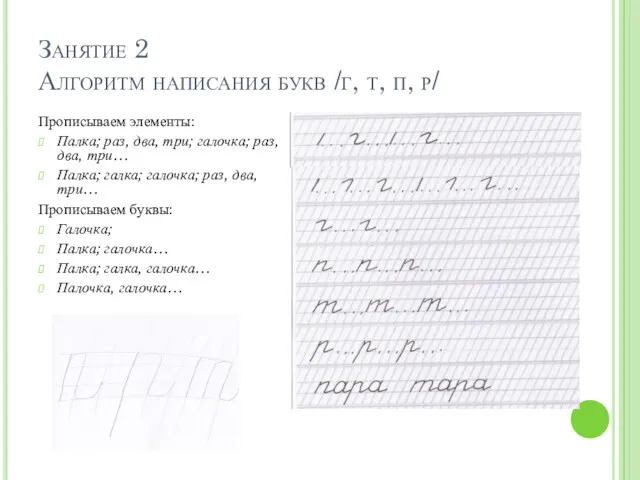 Занятие 2
Алгоритм написания букв /г, т, п, р/
Прописываем элементы:
Палка; раз, два, три; галочка; раз,
два, три…
Палка; галка; галочка; раз, два,
три…
Прописываем буквы:
Галочка;
Палка; галочка…
Палка; галка, галочка…
Палочка, галочка…
г...г...
п...п...п...
т...т...т...
р...р...р...
пара тара